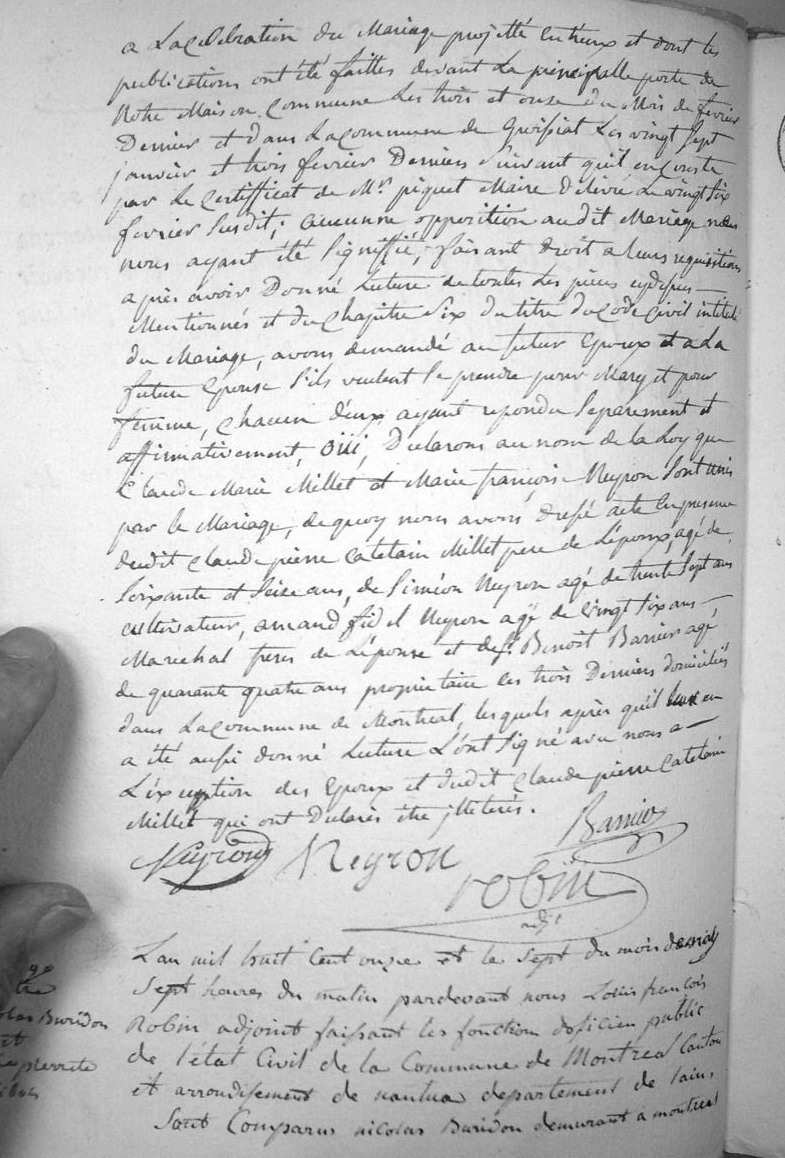 a La celebration du Mariage projetté Entreux et dont les
publications ont été faittes devant La principalle porte de
Notre Maison Commune Les trois et onse du Mois de fevrier
Dernier et dans La commune de Les vingt Sept
janvier et trois fevrier Derniers Suivant qu'il en Conste
par Le Certifficat de Mr. piquet Maire Delivré Le vingt Six
fevrier Susdit; aucunne opposition audit Mariage
nous ayant été Signiffié, faisant droit a leurs requisitions
après avoir Donné Lecture de toutes Les pieces cydessus —
Mentionnés et du Chapitre Six du titre du Code Civil intitulé
du Mariage, avons demandé au futur Epoux et a La
future Epouse S'ils veulent Se prendre pour Mary et pour
femme, chacun d'eux ayant repondu Separement et
affirmativement, Oui, Declarons au nom de la Loy que
Claude Marie Millet et Marie françoise Neyron Sont unis
par le Mariage, de quoy nous avons dressé acte En presence
dudit Claude pierre Catelain Millet pere de L'époux, agé de
Soixante et Seise ans, de Siméon Neyron agé de trente Sept ans
cultivateur, amand fidel Neyron agé de vingt Six ans —
Marechal freres de L'épouse et de Benoit Barrier agé
de quarante quatre ans proprietaire Les trois Derniers domiciliés
dans La commune de Montreal, lesquels après qu'il en
a été aussi donné Lecture L'ont Signé avec nous a —
L'exception des Epoux et dudit Claude pierre Catelain
Millet qui ont Declarés être jlleterés.
Neyron Neyron Barrier
robin
adjt
L'an mil huit Cent onze et le Sept du mois de may
Sept heures du matin pardevant nous Louis françois
Robin adjoint faisant les fonction d'oficier public
de l'état Civil de la Commune de Montreal Canton
et arrondissement de nantua departement de lain
Sont Comparus nicolas Buridon demeurant a montreal
Buridon
et
pierrette